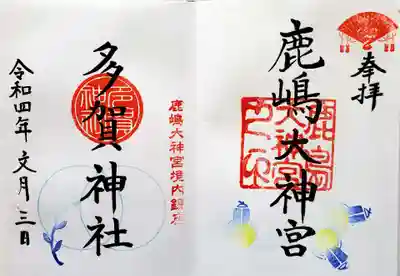 奉拝
鹿嶋大神宮
鹿嶋大神宮境内鎮座
多賀神社
令和四年文月三日